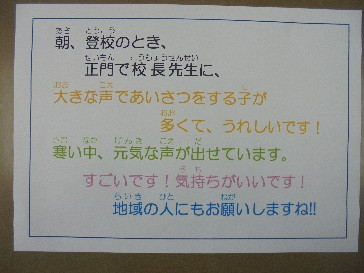 朝、登校のとき、
正門で校長先生に、
大きな声であいさつをする子が
多くて、うれしいです!
寒い中、元気な声が出せています。
すごいです!気持ちがいいです!
地域の人にもお願いしますね!!